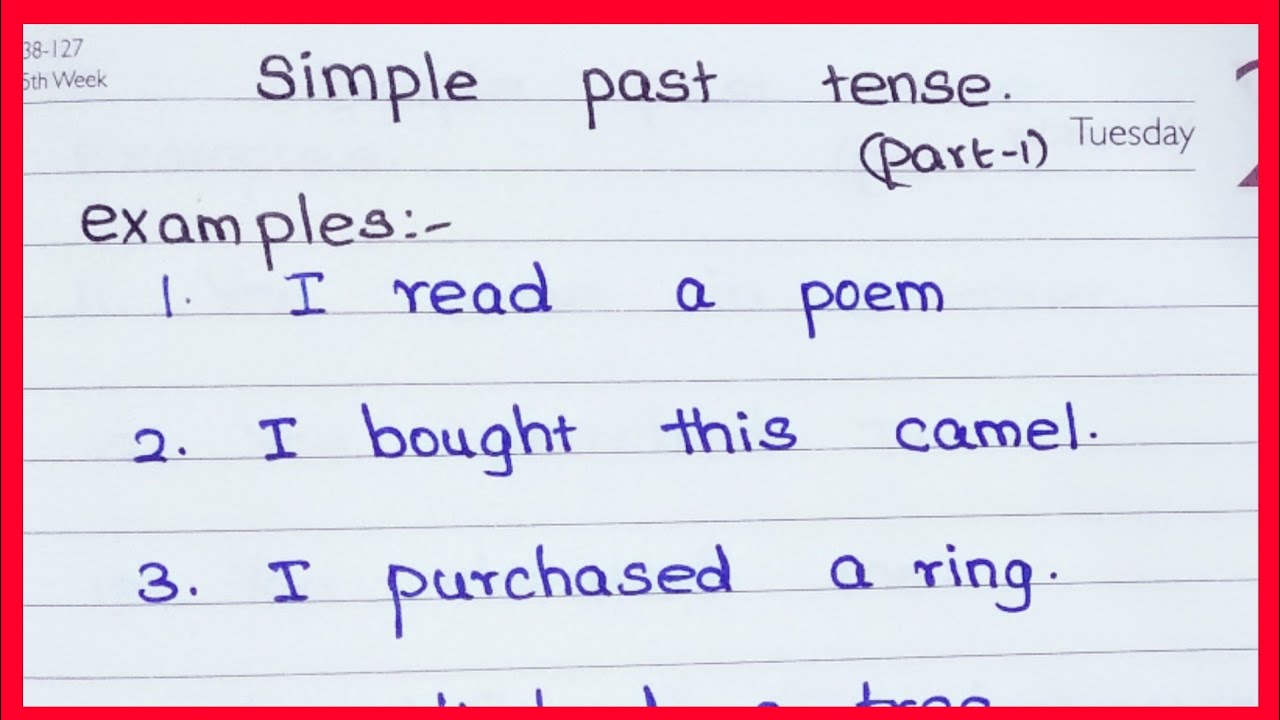 38-127
5th Week
Simple past tense.
(part-1)
Tuesday
examples:-
1. I read a poem
2. I bought this camel.
3. I purchased a ring.
a tree